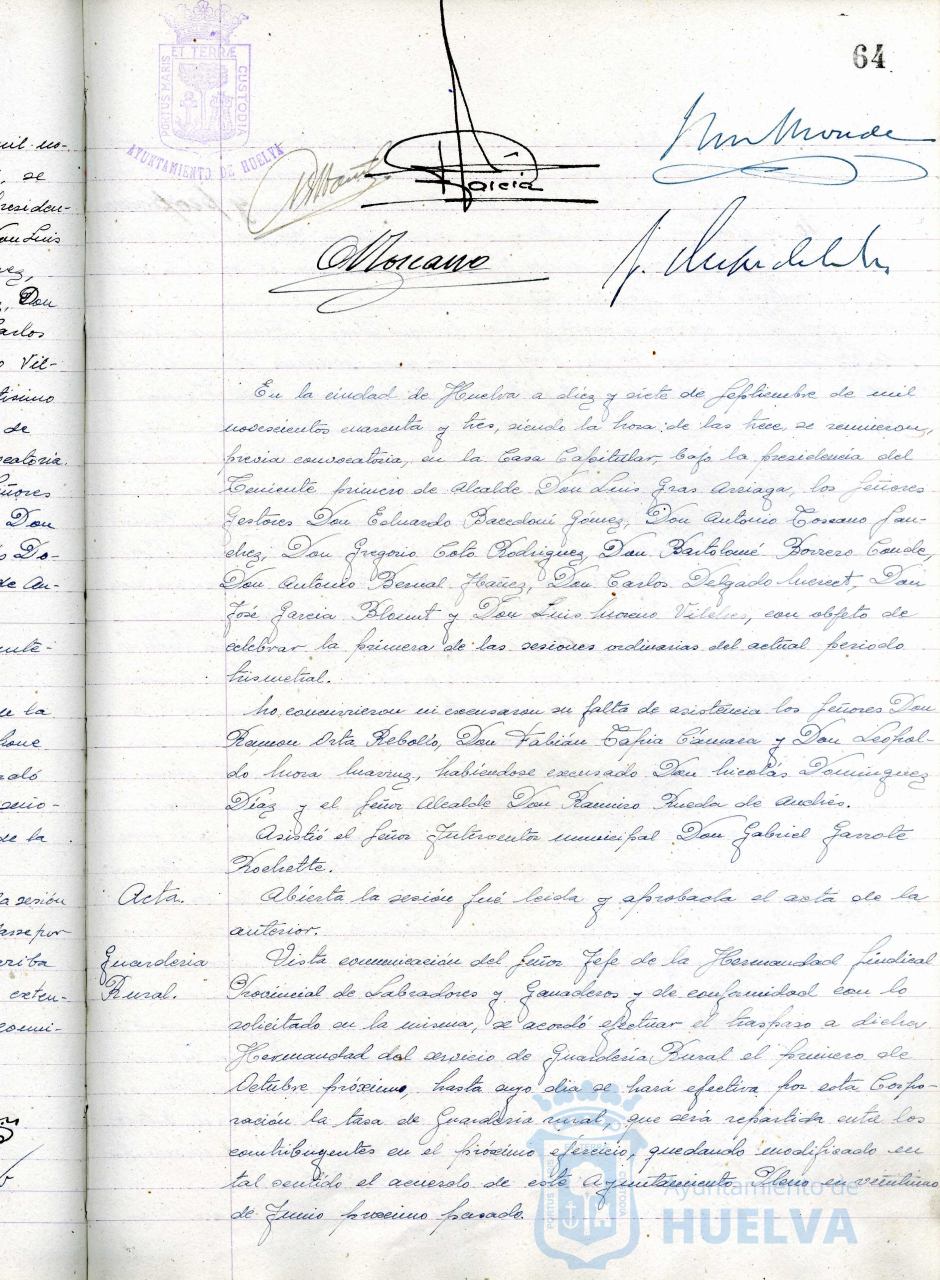 64
PORTUS MARIS
ET TERRÆ
CUSTODIA
AYUNTAMIENTO DE HUELVA
García
Toscano
En la ciudad de Huelva a diez y siete de Septiembre de mil
novescientos cuarenta y tres, siendo la hora de las trece, se reunieron,
previa convocatoria, en la Casa Capitular, bajo la presidencia del
Teniente primero de Alcalde Don Luis Gras Arriaga, los Señores
Gestores Don Eduardo Bacedoni Gómez, Don Antonio Toscano San-
chez, Don Gregorio Coto Rodriguez, Don Bartolomé Borrero Conde,
Don Antonio Bernal Ibañez, Don Carlos Delgado Merect, Don
José Garcia Blount y Don Luis Moreno Vilches, con objeto de
celebrar la primera de las sesiones ordinarias del actual periodo
trismetral.
No concurrieron ni excusaron su falta de asistencia los Señores Don
Ramon Orta Rebollo, Don Fabián Tapia Cámara y Don Leopol-
do Mora, habiendose excusado Don Nicolás Dominguez
Díaz y el Señor Alcalde Don Ramiro Rueda de Andrés.
Asistió el Señor Interventor municipal Don Gabriel Garrote
Rochette.
Acta.
Abierta la sesión fué leida y aprobada el acta de la
anterior.
Guarderia
Rural.
Vista comunicación del Señor Jefe de la Hermandad Sindical
Provincial de Labradores y Ganaderos y de conformidad con lo
solicitado en la misma, se acordó efectuar el traspaso a dicha
Hermandad del servicio de Guardería Rural el primero de
Octubre próximo, hasta cuyo dia se hará efectiva por esta Corpo-
ración la tasa de Guardería rural, que será repartida entre los
contribuyentes en el próximo ejercicio, quedando modificado en
tal sentido el acuerdo de este Ayuntamiento Pleno en veintiuno
de Junio proximo pasado.
Ayuntamiento de
HUELVA